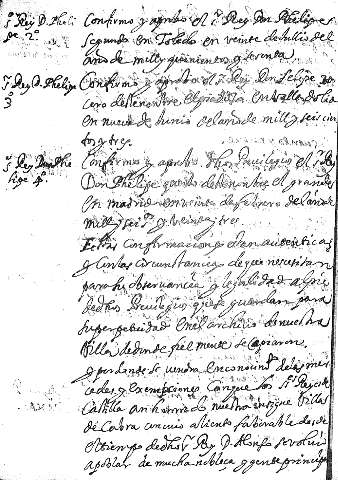 sr Rey D. Pheli
pe 2º
Confirmo y aprobo el sr Rey Don Phelipe
segundo en Toledo en veinte de Jullio del
año de mill y quinientos y sesenta.
sr Rey D. Phelipe
3
Confirmo y aprobo el sr Rey Don Felipe
cero deste nombre el en Valladolid
en nueve de Junio del año de mill y seiscien
tos y tres.
sr Rey Don Phe
lipe 4º
Confirmo y aprobo dho Privilegio el sr Rey
Don Phelipe quarto deste nombre el grande
en madrid en veinte de febrero del año de
mill y seisº y veinte y tres
Estas confirmaciones estan autenticas
y con las circunstancias de que necesitan
para su observancia y legalidad
de dho Privilegio que se guardan para
su perpetuidad en el archivo de nuestra
Villa de donde fiel mente se copiaron
y perdense sin duda en con delas mer
cedes, y exempciones con que los sres Reyes de
Castilla an honrrado nuestra insigne Villa
de Cabra con cuio aliento faborable desde
el tiempo de dho sr Rey D. Alonso se volvio
a poblar de mucha nobleca y gente principal